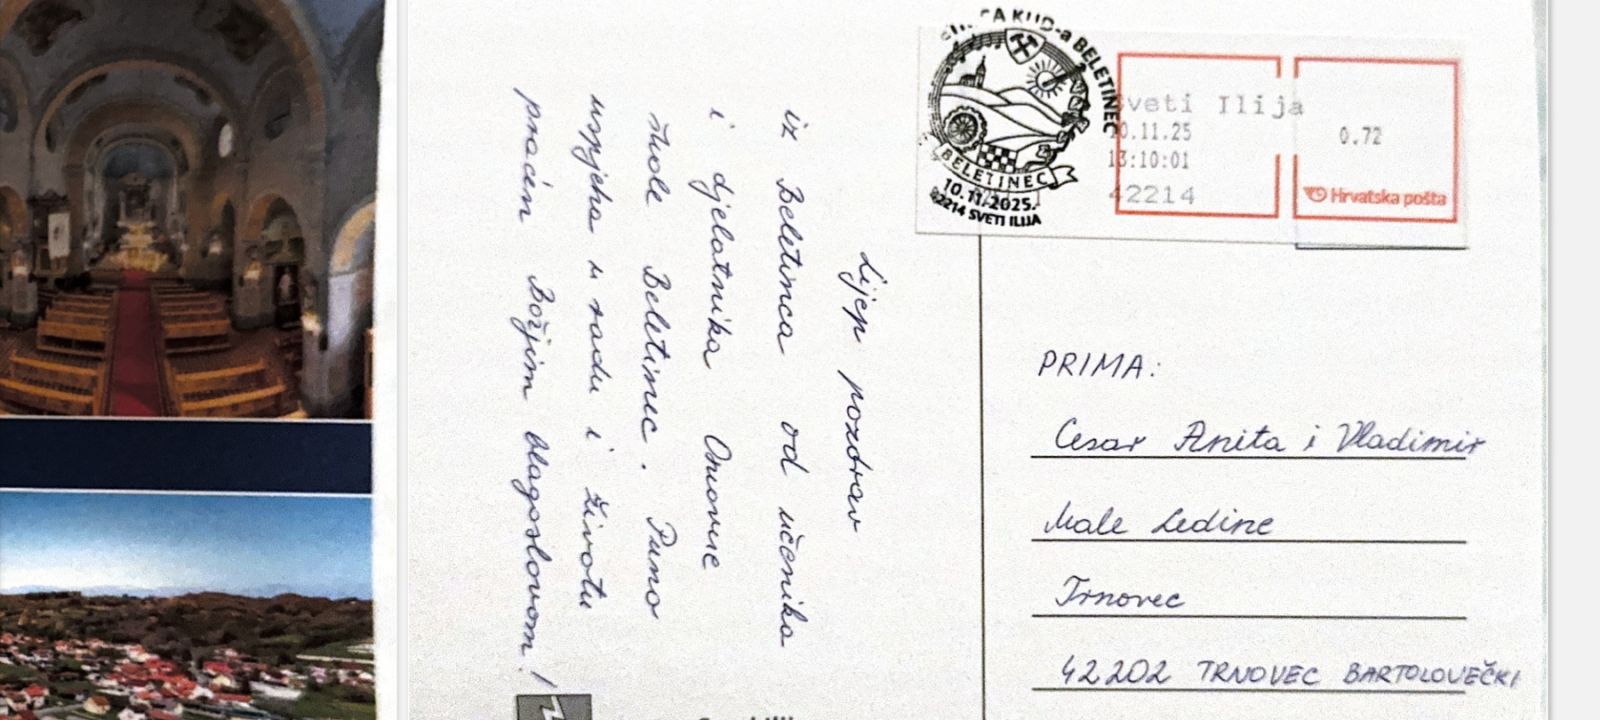 Lijep pozdrav
iz Beletinca od učenika
i djelatnika Osnovne
škole Beletinec. Puno
uspjeha u radu i životu
praćen Božjim blagoslovom!
KUD-a BELETINEC
BELETINEC
10.11.2025.
42214 SVETI ILIJA
Sveti Ilija
10.11.25
13:10:01
42214
0.72
Hrvatska pošta
PRIMA:
Cesar Anita i Vladimir
Male Ledine
Trnovec
42202 TRNOVEC BARTOLOVEČKI